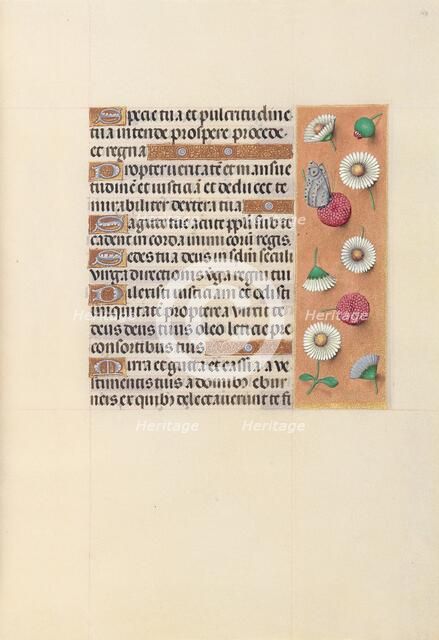 Specie tua et pulcritudine
tua intende prospere procede
et regna
Propter veritatē et mansue
tudinē et iusticiā et deducet te
mirabiliter dextera tua
Sagitte tue acute ppli sub te
cadent in corda inimicorū regis
Sedes tua deus in sclm seculi
virga directionis virga regni tui
Dilexisti iusticiam et odisti
iniquitatē propterea vnxit te
deus deus tuus oleo leticie pre
consortibus tuis
Mirra et gutta et cassia a ve
stimentis tuis a domibꝫ ebur
neis ex quibꝫ delectauerunt te fi
Heritage
Heritage
Heritage
Heritage
Heritage
Heritage